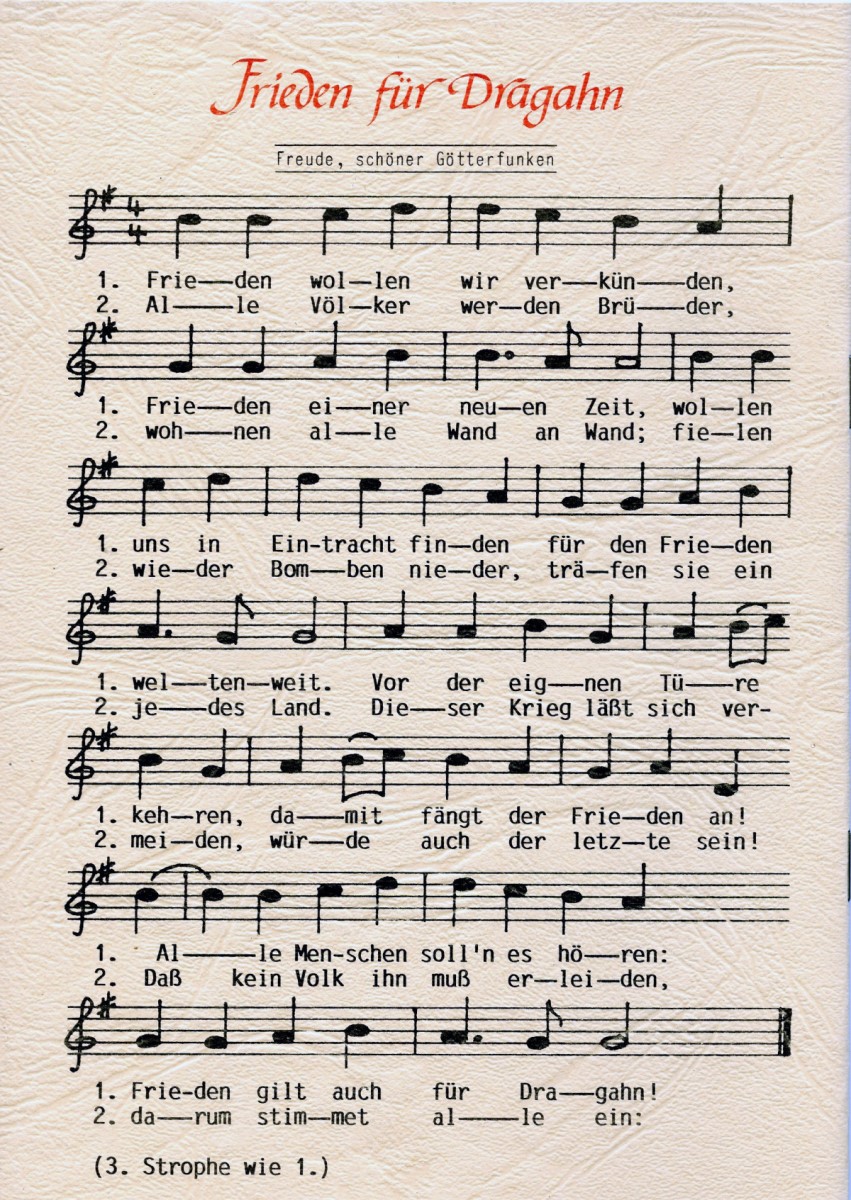 Frieden für Dragahn
Freude, schöner Götterfunken
4
4
1. Frie—den wol—len wir ver—kün—den,
2. Al—le Völ—ker wer—den Brü—der,
1. Frie—den ei—ner neu—en Zeit, wol—len
2. woh—nen al—le Wand an Wand; fie—len
1. uns in Ein-tracht fin—den für den Frie—den
2. wie—der Bom—ben nie—der, trä—fen sie ein
1. wel—ten—weit. Vor der eig—nen Tü—re
2. je—des Land. Die—ser Krieg läßt sich ver-
1. keh—ren, da—mit fängt der Frie—den an!
2. mei—den, wür—de auch der letz—te sein!
1. Al—le Men-schen soll'n es hö—ren:
2. Daß kein Volk ihn muß er—lei—den,
1. Frie-den gilt auch für Dra—gahn!
2. da—rum stim—met al—le ein:
(3. Strophe wie 1.)